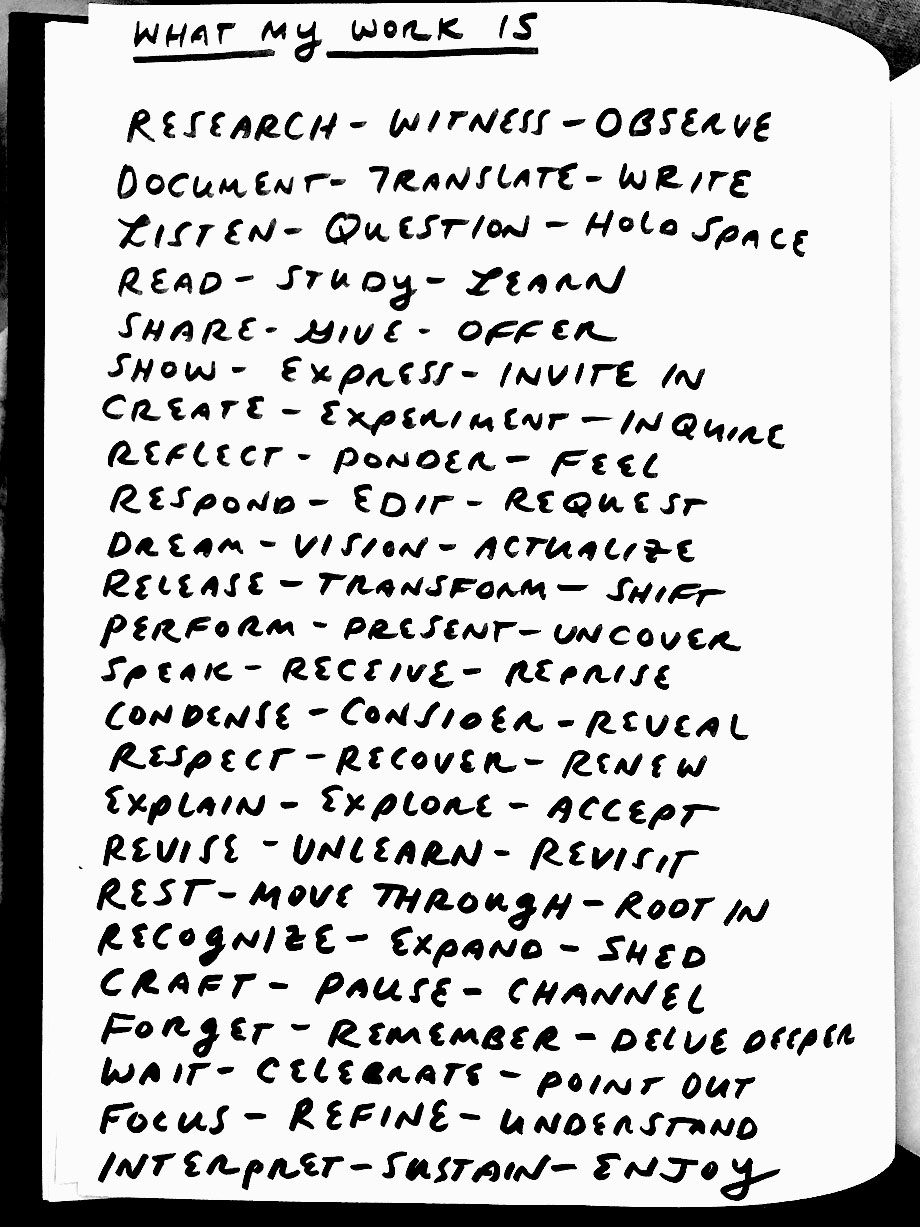 WHAT MY WORK IS
RESEARCH - WITNESS - OBSERVE
DOCUMENT - TRANSLATE - WRITE
LISTEN - QUESTION - HOLD SPACE
READ - STUDY - LEARN
SHARE - GIVE - OFFER
SHOW - EXPRESS - INVITE IN
CREATE - EXPERIMENT - INQUIRE
REFLECT - PONDER - FEEL
RESPOND - EDIT - REQUEST
DREAM - VISION - ACTUALIZE
RELEASE - TRANSFORM - SHIFT
PERFORM - PRESENT - UNCOVER
SPEAK - RECEIVE - REPRISE
CONDENSE - CONSIDER - REVEAL
RESPECT - RECOVER - RENEW
EXPLAIN - EXPLORE - ACCEPT
REVISE - UNLEARN - REVISIT
REST - MOVE THROUGH - ROOT IN
RECOGNIZE - EXPAND - SHED
CRAFT - PAUSE - CHANNEL
FORGET - REMEMBER - DELVE DEEPER
WAIT - CELEBRATE - POINT OUT
FOCUS - REFINE - UNDERSTAND
INTERPRET - SUSTAIN - ENJOY